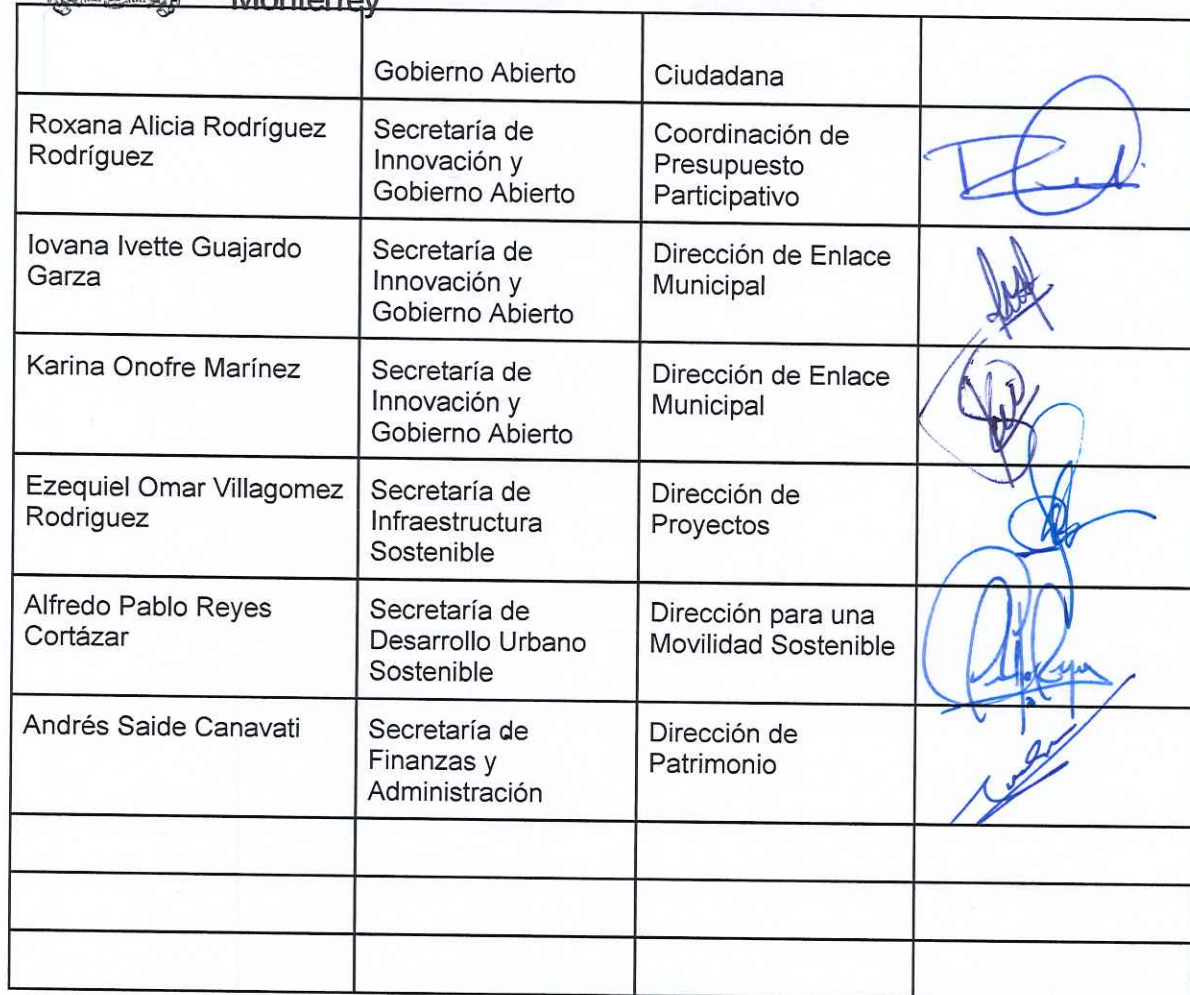 Monterrey
Gobierno Abierto
Ciudadana
Roxana Alicia Rodríguez
Rodríguez
Secretaría de
Innovación y
Gobierno Abierto
Coordinación de
Presupuesto
Participativo
Iovana Ivette Guajardo
Garza
Secretaría de
Innovación y
Gobierno Abierto
Dirección de Enlace
Municipal
Karina Onofre Marínez
Secretaría de
Innovación y
Gobierno Abierto
Dirección de Enlace
Municipal
Ezequiel Omar Villagomez
Rodriguez
Secretaría de
Infraestructura
Sostenible
Dirección de
Proyectos
Alfredo Pablo Reyes
Cortázar
Secretaría de
Desarrollo Urbano
Sostenible
Dirección para una
Movilidad Sostenible
Andrés Saide Canavati
Secretaría de
Finanzas y
Administración
Dirección de
Patrimonio